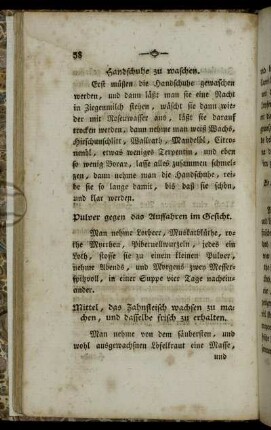 38
Handschuhe zu waschen.
Erst müßen die Handschuhe gewaschen
werden, und dann läßt man sie eine Nacht
in Ziegenmilch stehen, wäscht sie dann wie-
der mit Rosenwasser aus, läßt sie darauf
trocken werden, dann nehme man weiß Wachs,
Hirschunschlitt, Wallrath, Mandelöl, Citro-
nenöl, etwas weniges Terpentin, und eben
so wenig Borax, lasse alles zusammen schmel-
zen, dann nehme man die Handschuhe, rei-
be sie so lange damit, bis daß sie schön,
und klar werden.
Pulver gegen das Auffahren im Gesicht.
Man nehme Lorbeer, Muskatblüthe, ro-
the Myrrhen, Pibernellwurzeln, jedes ein
Loth, stosse sie zu einem kleinen Pulver,
nehme Abends, und Morgens zwey Messer-
spitzvoll, in einer Suppe vier Tage nachein-
ander.
Mittel, das Zahnfleisch wachsen zu ma-
chen, und dasselbe frisch zu erhalten.
Man nehme von dem säubersten, und
wohl ausgewachsnen Löfelkraut eine Masse,
und